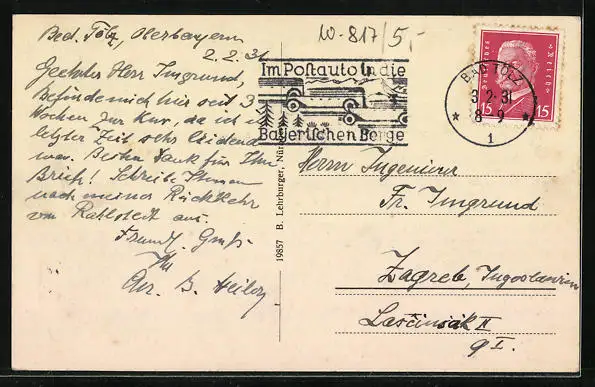 Bad. Tölz, Oberbayern
2.2.31
Geehrter Herr Imgrund,
Befinde mich hier seit 3
Wochen zur Kur, da ich in
letzter Zeit sehr leidend
war. Besten Dank für Ihren
Brief! Schreibe Ihnen
nach meiner Rückkehr
von Rahlstedt aus.
Freundl. Gruß
Ihr
B.
19857 B. Lehrburger, Nür
W-817/5,-
Im Postauto in die
Bayerischen Berge
BAD TÖLZ
3.2.31
* 8-9 *
1
Deutsches Reich
15 15
Herrn Ingenieur
Fr. Imgrund
Zagreb, Jugoslavien
Laščinšak II
9 I.